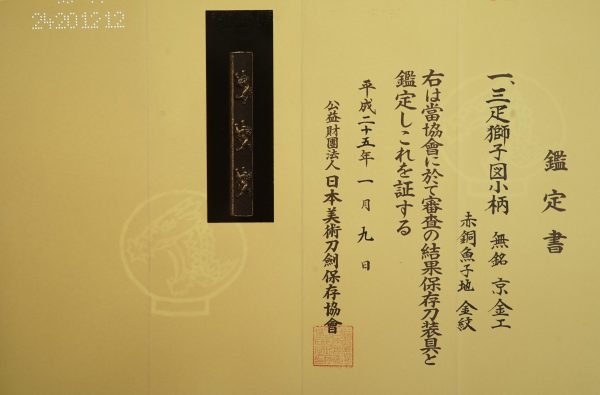 鑑定書
一、三疋獅子図小柄 無銘 京金工
赤銅魚子地 金紋
右は當協會に於て審査の結果保存刀装具と
鑑定しこれを証する
平成二十五年一月九日
公益財團法人 日本美術刀劍保存協會
24201212